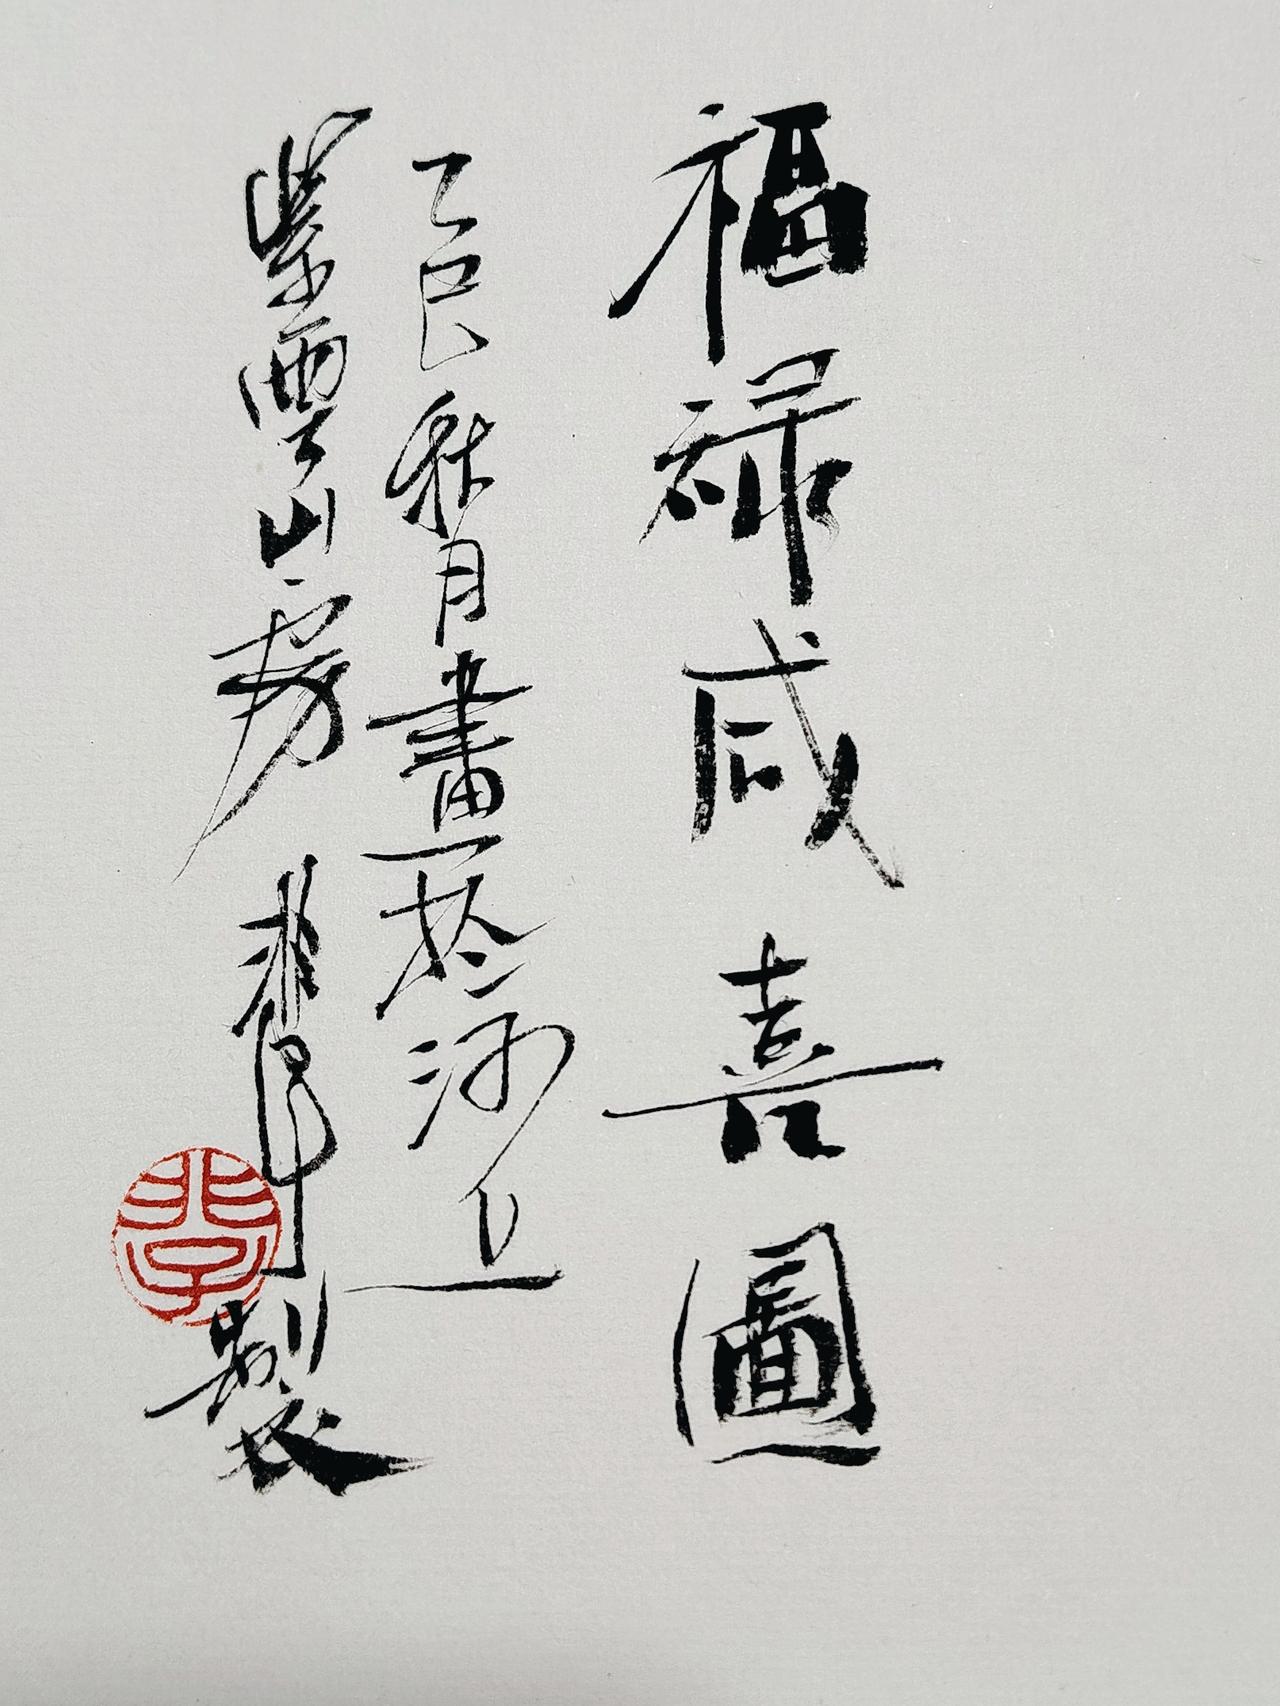 福祿咸喜圖
乙巳秋月畫於沙上
紫雲山房 非享製